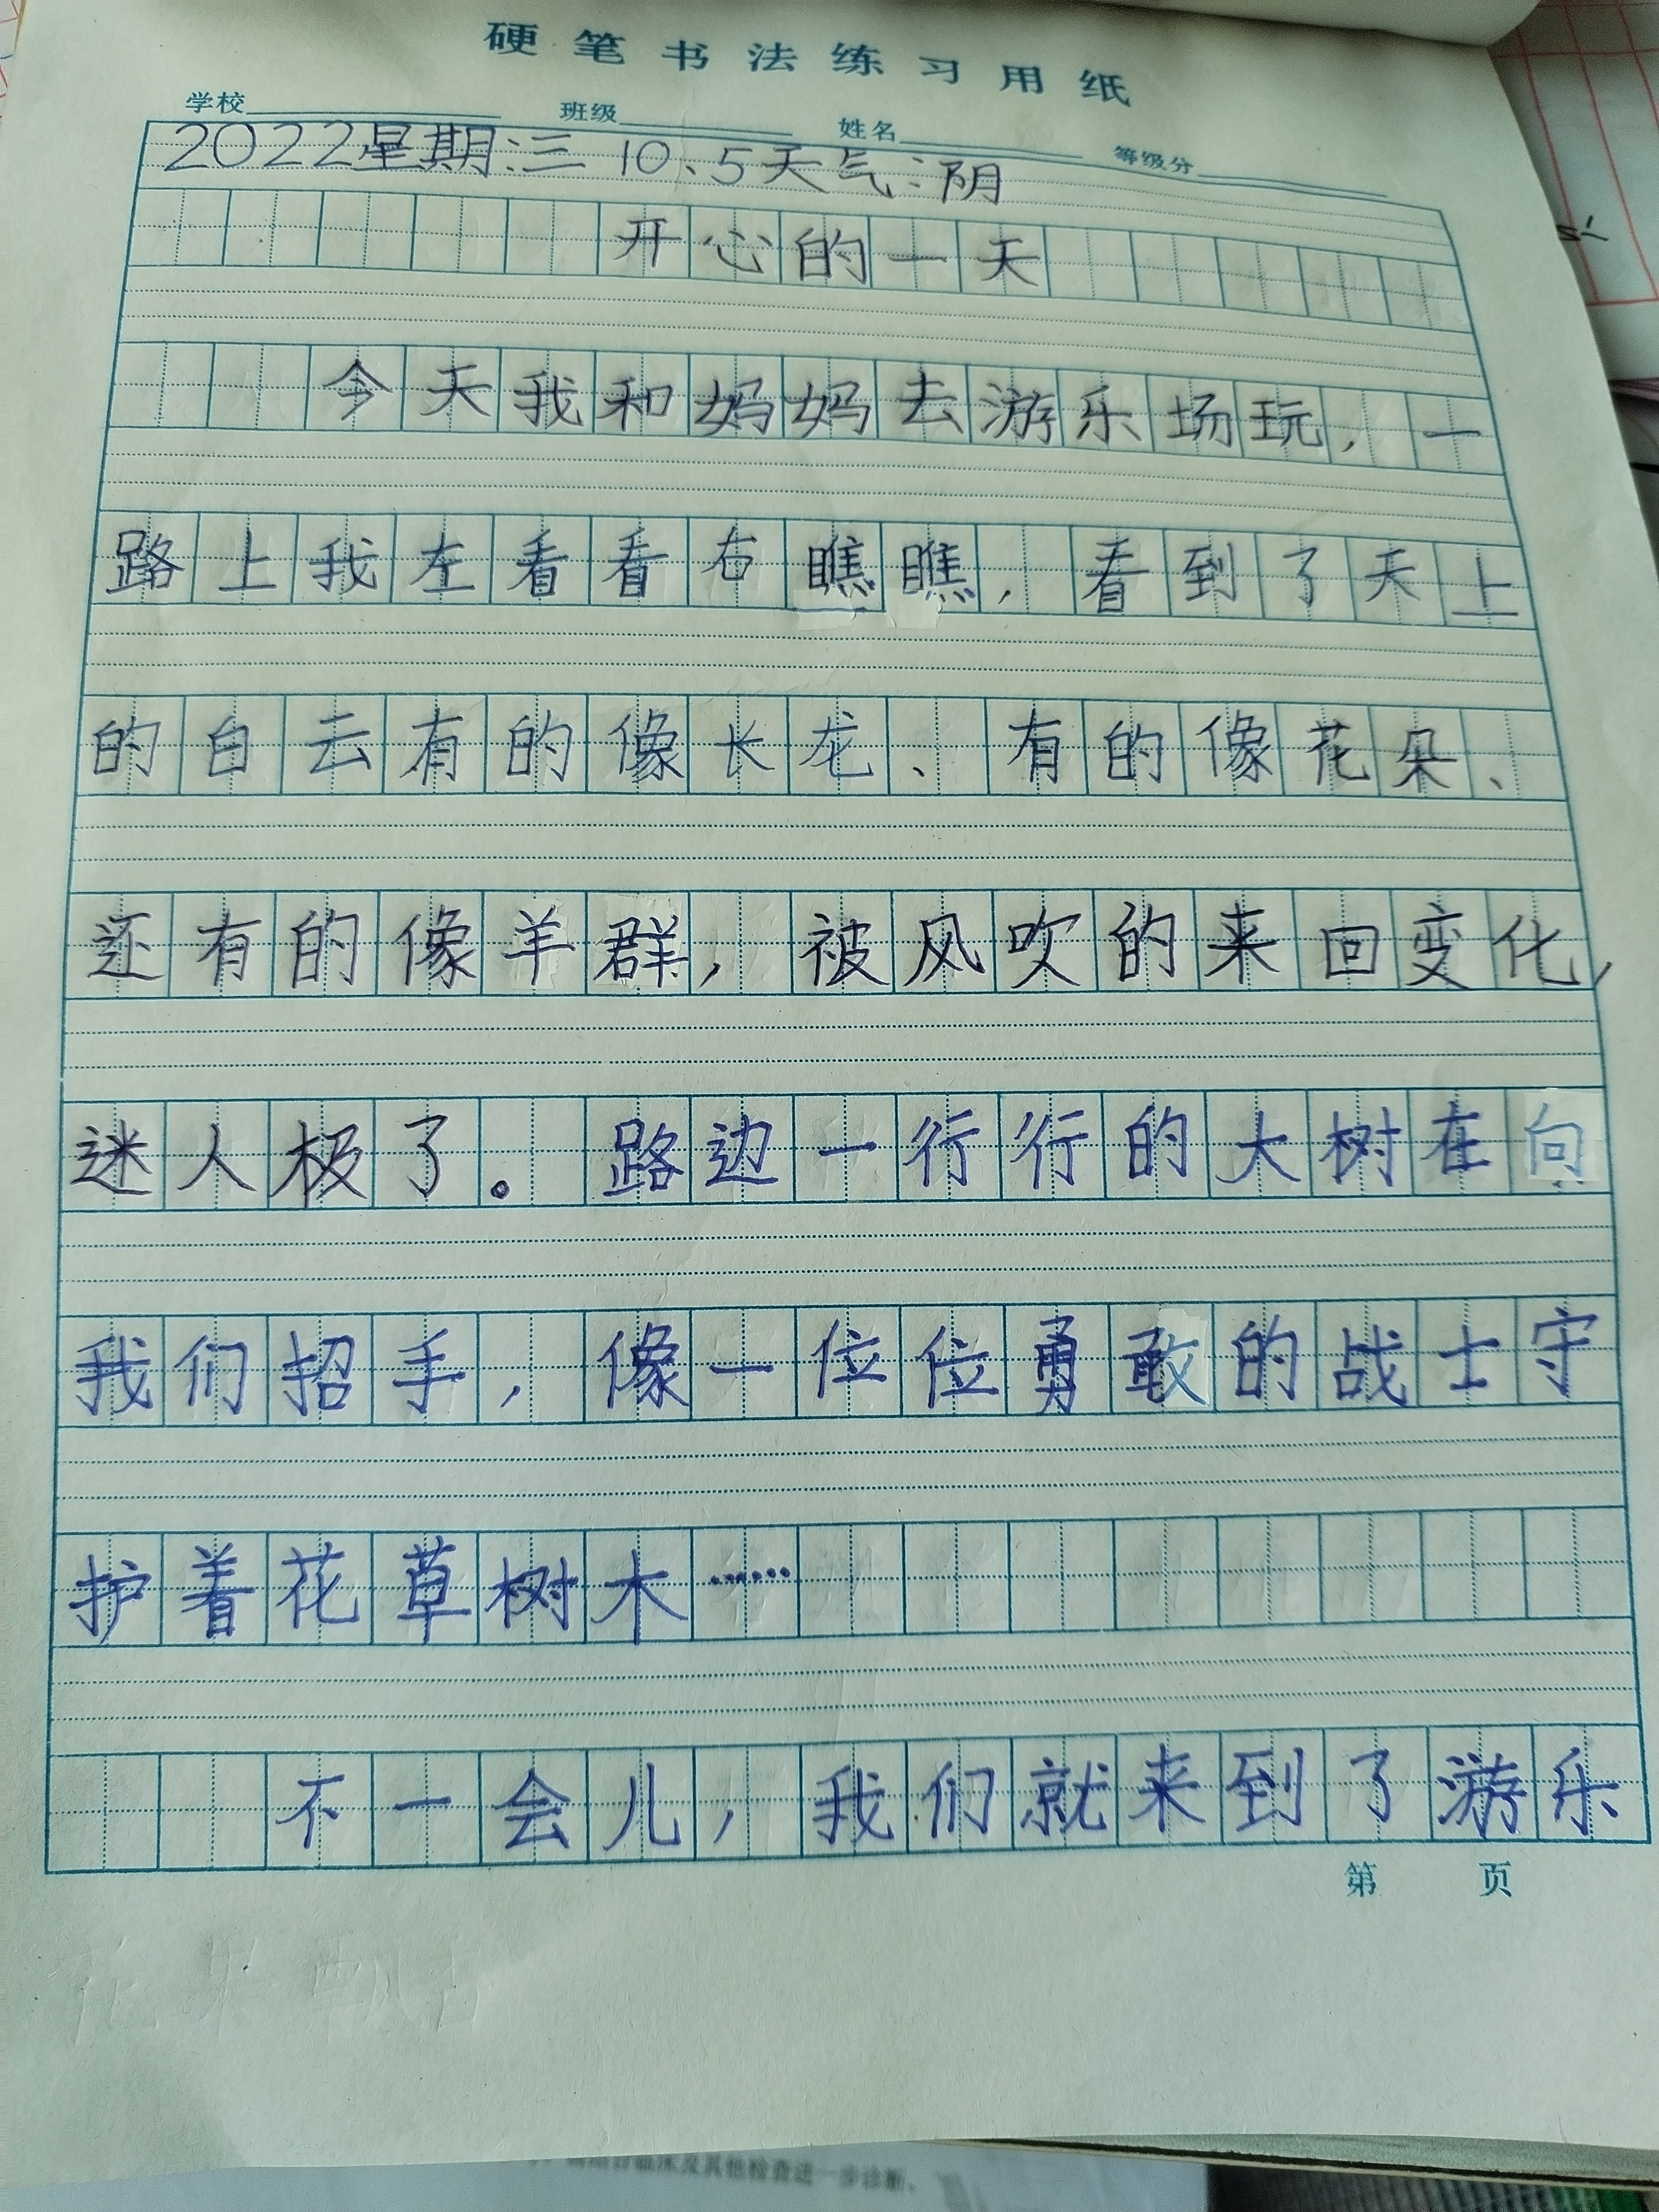 硬笔书法练习用纸
学校 班级 姓名 等级分
2022星期:三 10、5天气:阴
开心的一天
今天我和妈妈去游乐场玩,一
路上我左看看右瞧瞧,看到了天上
的白云有的像长龙、有的像花朵、
还有的像羊群,被风吹的来回变化,
迷人极了。路边一行行的大树在向
我们招手,像一位位勇敢的战士守
护着花草树木……
不一会儿,我们就来到了游乐
第 页
临床及其他检查进一步诊断。